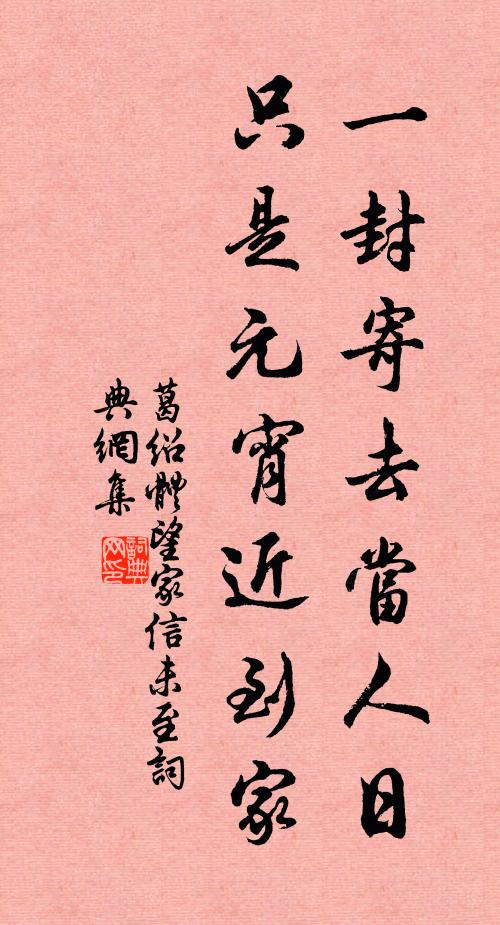 一封寄去當人日
只是元宵近到家
葛紹體望家信未至詞
典網集
詞典
网印